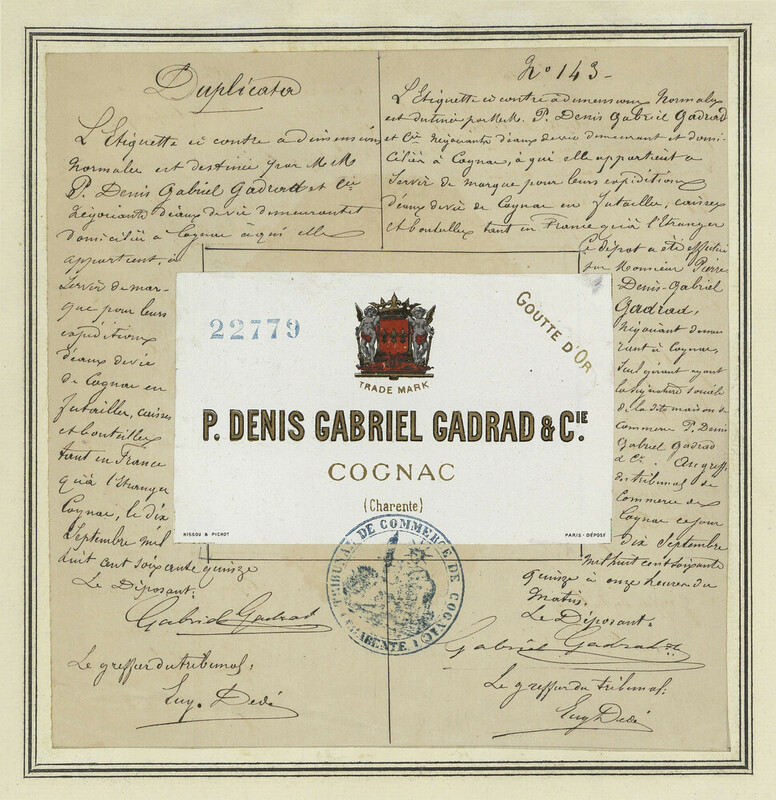 Duplicata
L'Etiquette ci contre a dimensions
Normales est destinée par M.M.
P. Denis Gabriel Gadrad et Cie
Négociants d'eaux de vie demeurant et
domiciliés à Cognac à qui elle
appartient, à
servir de mar-
que pour leurs
expéditions
d'eaux de vie
de Cognac en
futailles, caisses
et bouteilles
tant en France
qu'à l'Etranger
Cognac, le dix
Septembre mil
huit cent soixante quinze
Le Déposant.
Gabriel Gadrad
Le greffier du tribunal,
Eug. Dedé
No 143-
L'Etiquette ci contre a dimensions Normales
est destinée par M.M. P. Denis Gabriel Gadrad
et Cie Négociants d'eaux de vie demeurant et domi-
ciliés à Cognac, à qui elle appartient à
servir de marque pour leurs expéditions
d'eaux de vie de Cognac en futailles, caisses
et bouteilles tant en France qu'à l'Etranger
Ce dépot a été effectué
par Monsieur Pierre
Denis-Gabriel
Gadrad,
Négociant demeu
rant à Cognac,
Seul gérant ayant
la signature sociale
de la dite maison de
Commerce P. Denis
Gabriel Gadrad
& Cie. Au greffe
du tribunal de
Commerce de
Cognac ce jour
dix Septembre
mil huit cent soixante
quinze à onze heures du
matin.
Le Déposant.
Gabriel Gadrad
Le greffier du tribunal.
Eug Dedé
22779
GOUTTE D'OR
TRADE MARK
P. DENIS GABRIEL GADRAD & CIE.
COGNAC
(Charente)
NISSOU & PICHOT
PARIS - DÉPOSÉ
TRIBUNAL DE COMMERCE DE COGNAC
CHARENTE